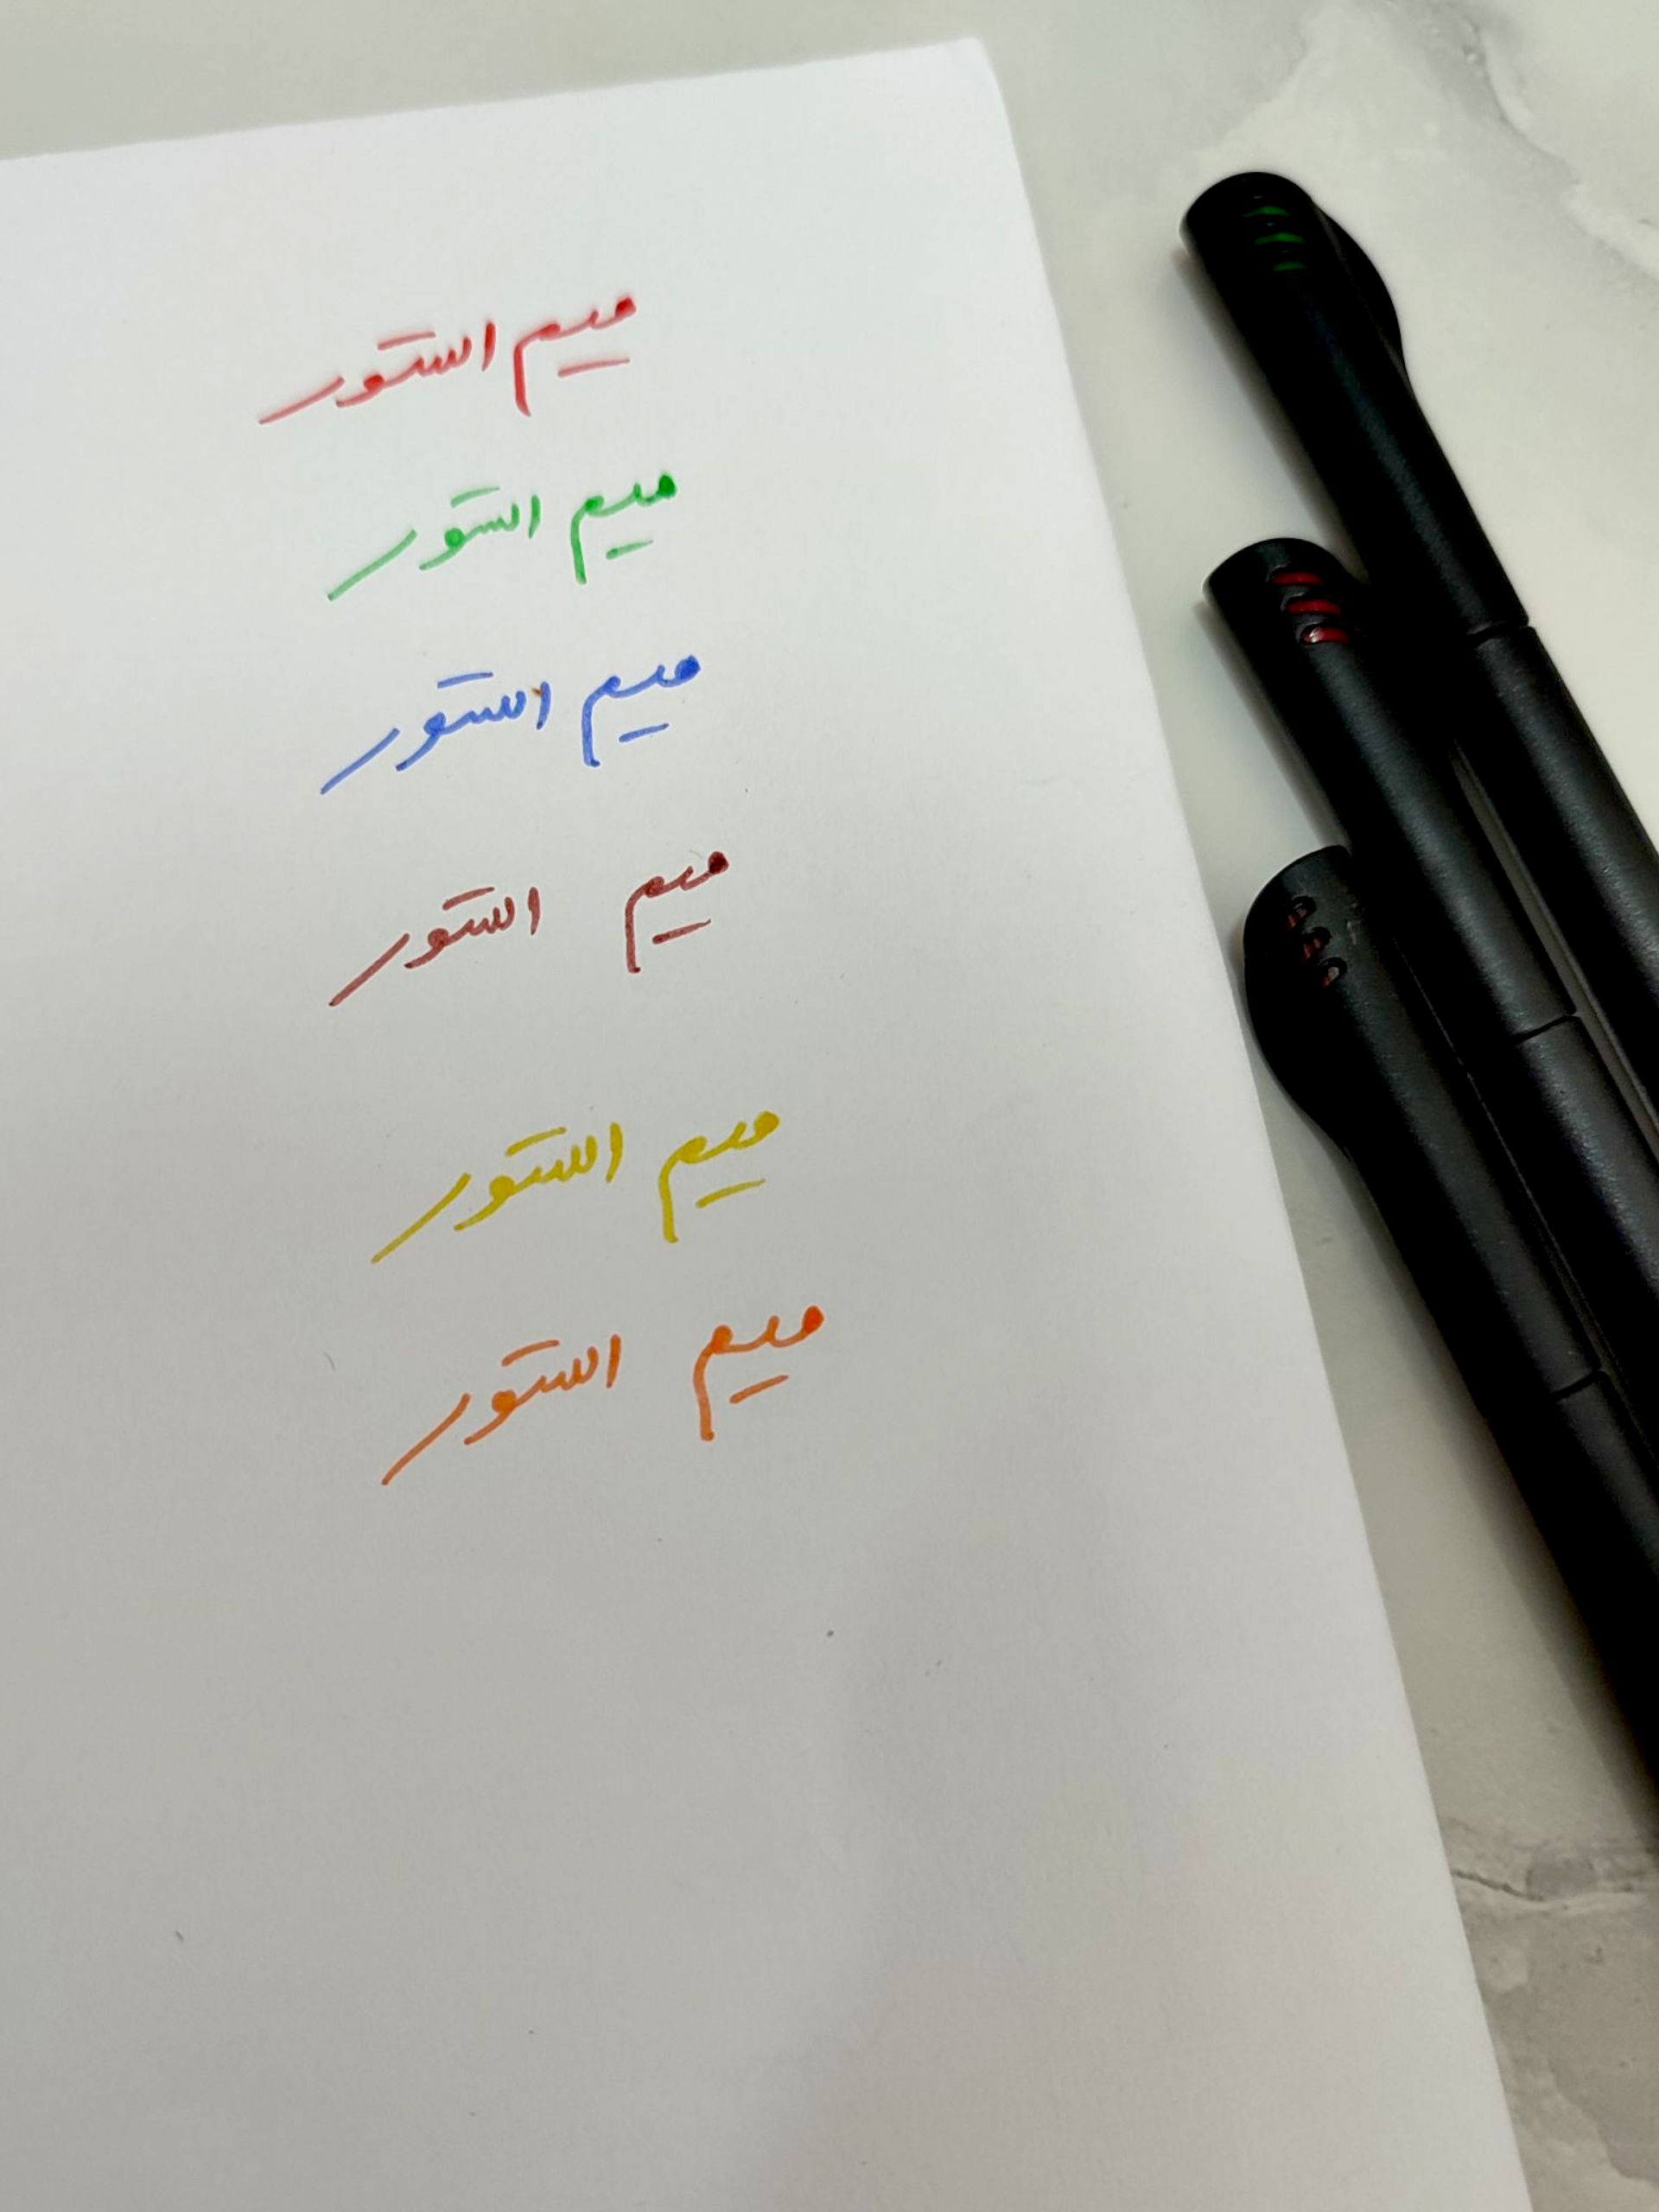 ميم الستور
ميم الستور
ميم الستور
ميم الستور
ميم الستور
ميم الستور